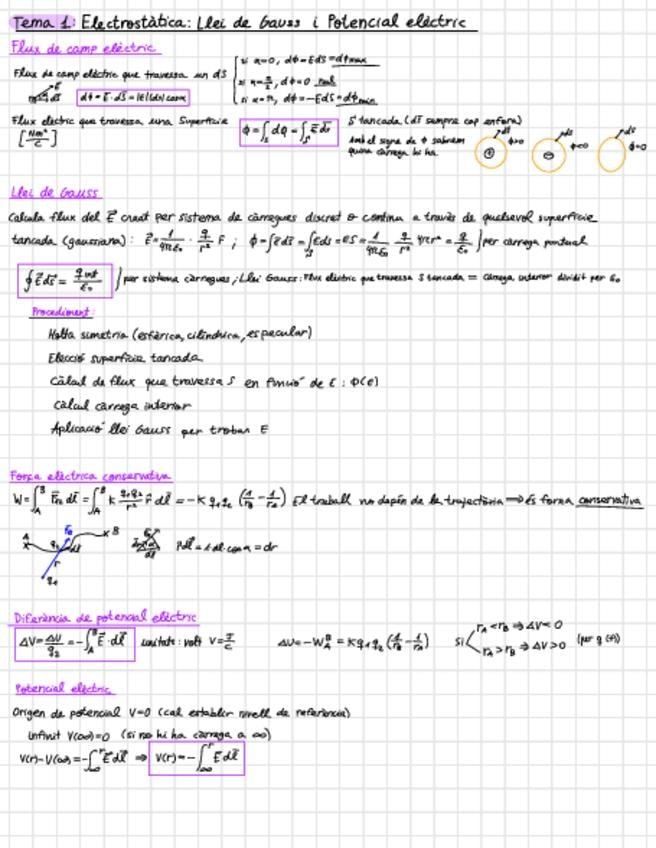 Tema 1: Electrostàtica: Llei de Gauss i Potencial elèctric
Flux de camp elèctric
Flux de camp elèctric que travessa un dS
dΦ = E⃗ · dS⃗ = |E||dS| cosα
si α=0, dΦ=EdS=dΦmax
si α=π/2, dΦ=0 nul
si α=π, dΦ=-EdS=dΦmin
Flux elèctric que travessa una Superfície
[Nm²/C]
Φ=∫s dΦ=∫s E⃗ dS⃗
S tancada (dS sempre cap enfora)
Amb el signe de Φ sabrem
quina càrrega hi ha.
+ dS Φ>0
- dS Φ<0
dS Φ=0
Llei de Gauss
Calcula flux del E⃗ creat per sistema de càrregues discret o continu a través de qualsevol superfície
tancada (gaussiana): E⃗=1/4πε₀ · q/r² r̂ ; Φ=∫E⃗dS⃗=∫EdS=ES=1/4πε₀ q/r² 4πr²=q/ε₀ } per càrrega puntual
∮E⃗dS⃗=q int/ε₀ } per sistema càrregues, Llei Gauss: Flux elèctric que travessa S tancada = càrrega interior dividit per ε₀
Procediment:
Molta simetria (esfèrica, cilíndrica, especular)
Elecció superfície tancada
Càlcul de flux que travessa S en funció de E: Φ(E)
Càlcul càrrega interior
Aplicació llei Gauss per trobar E
Força elèctrica conservativa
W=∫_A^B F⃗e dl⃗=∫_A^B K q₁q₂/r² r̂ dl⃗=-K q₁q₂ (1/rB - 1/rA) El treball no depèn de la trajectòria ⟹ és força conservativa
A q₂ Fe dl B
r
q₁
r̂dl⃗=1·dl·cosα=dr
Diferència de potencial elèctric
ΔV=ΔU/q₂=-∫_A^B E⃗·dl⃗ unitats: volt V=J/C ΔU=-W_A^B=Kq₁q₂(1/rB - 1/rA) si rA<rB ⇒ ΔV<0
rA>rB ⇒ ΔV>0 (per q (+))
Potencial elèctric
Origen de potencial V=0 (cal establir nivell de referència)
Infinit V(∞)=0 (si no hi ha càrrega a ∞)
V(r)-V(∞)=-∫_∞^r E⃗dl⃗ ⇒ V(r)=-∫_∞^r E⃗dl⃗